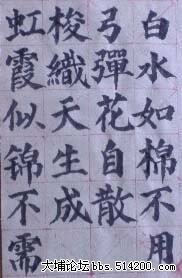 白水如棉不用
弓彈花自散
梭織天生成
虹霞似锦不需
大埔论坛bbs.514200.com